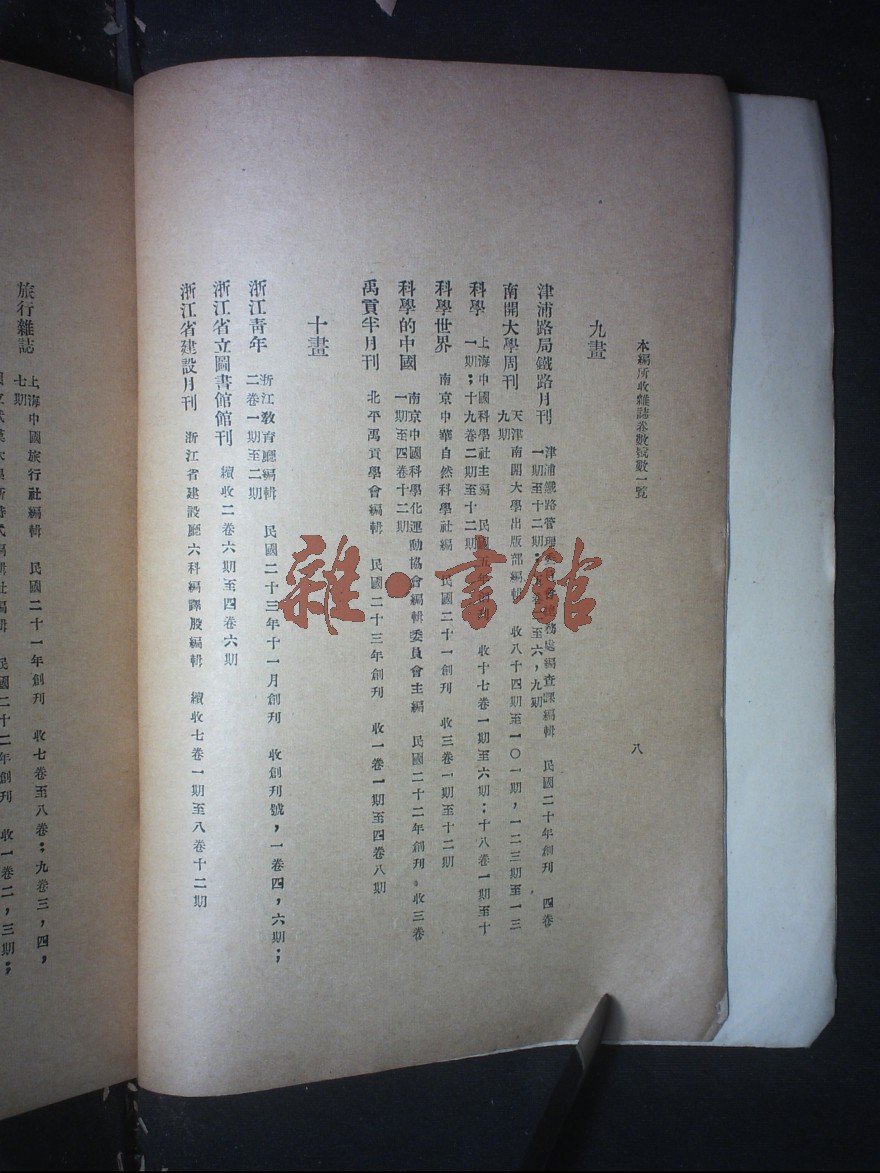 本編所收雜誌卷數號數一覽
八
九畫
津浦路局鐵路月刊 津浦鐵路管理 務處編查課編輯 民國二十年創刊 四卷
一期至十二期: 至六,九期
南開大學周刊 天津南開大學出版部編輯 收八十四期至一〇一期,一二三期至一三
九期
科學 上海中國科學社主編 民國五年 刊 收十七卷一期至六期;十八卷一期至十
一期;十九卷二期至十二期
科學世界 南京中華自然科學社編 民國二十一創刊 收三卷一期至十二期
科學的中國 南京中國科學化運動協會編輯委員會主編 民國二十二年創刊。收三卷
一期至四卷十二期
禹貢半月刊 北平禹貢學會編輯 民國二十三年創刊 收一卷一期至四卷八期
十畫
浙江青年 浙江教育廳編輯 民國二十三年十一月創刊 收創刊號,一卷四,六期;
二卷一期至二期
浙江省立圖書館館刊 續收二卷六期至四卷六期
浙江省建設月刊 浙江省建設廳六科編譯股編輯 續收七卷一期至八卷十二期
旅行雜誌 上海中國旅行社編輯 民國二十一年創刊 收七卷至八卷:九卷三,四,
七期
民國二十二年創刊 收一卷二,三期;
雜·書館